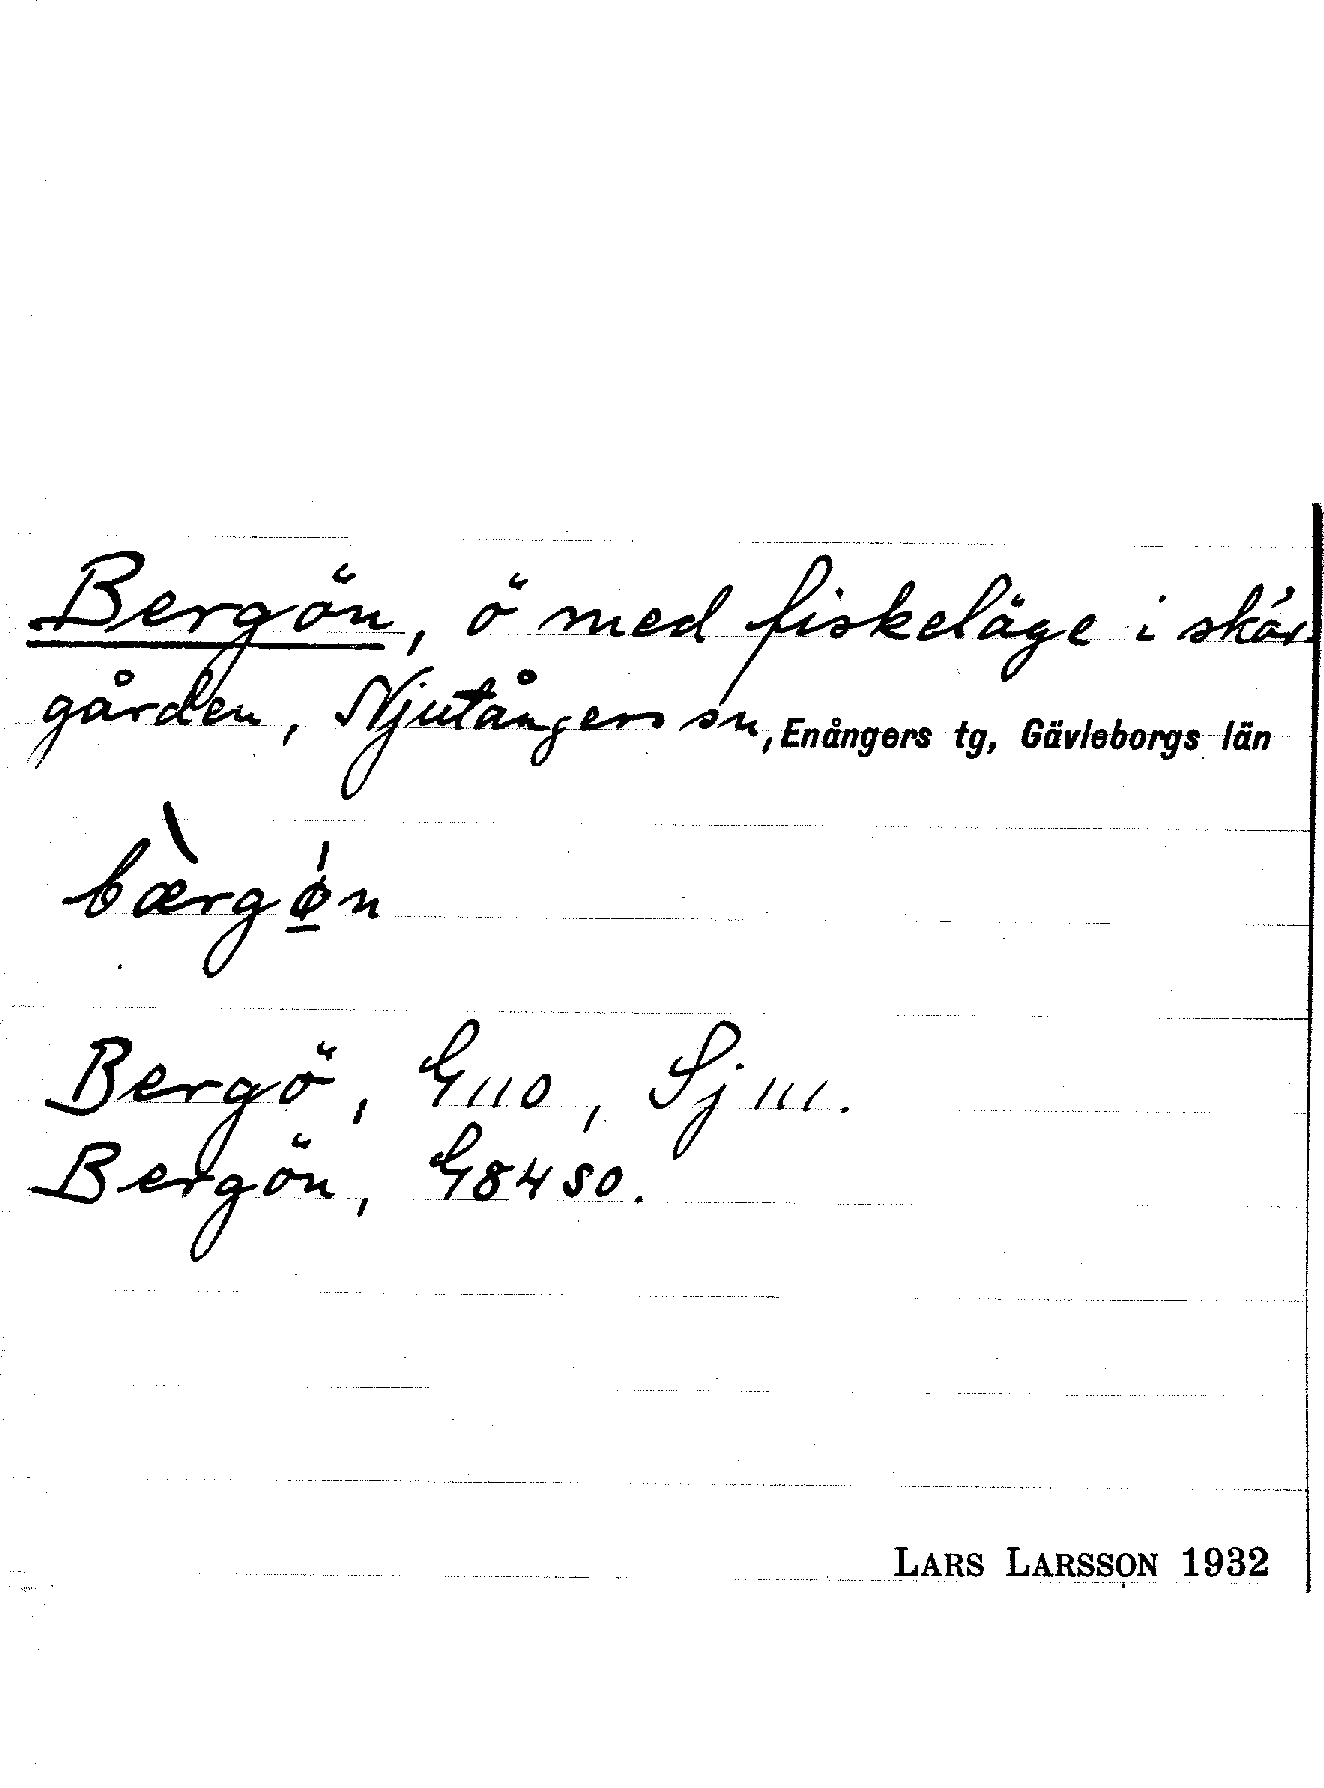 Bergön, ö med fiskeläge i skär-
gården, Njutångers sn, Enångers tg, Gävleborgs län
bærgøn
Bergö, G110, Sj 111.
Bergön, G84 SO.
LARS LARSSON 1932